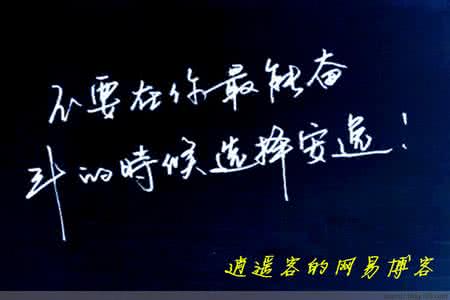 不要在你最能奋
斗的時候选择安逸！
逍遥客的网易博客